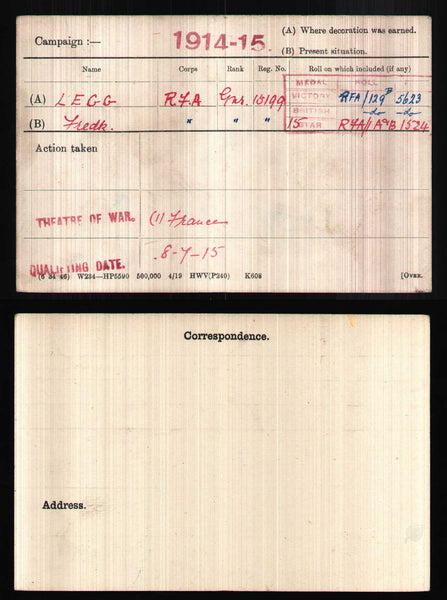 Campaign :— 1914-15. (A) Where decoration was earned.
(B) Present situation.
Name Corps Rank Reg. No. Roll on which included (if any)
MEDAL ROLL
(A) LEGG R.F.A Gnr. 15199 VICTORY RFA/129B 5623
(B) Fredk. " " " BRITISH -do- -do-
15 STAR RFA/1A&B 1524
Action taken
THEATRE OF WAR. (1) France
QUALIFYING DATE. 8-7-15
(6 34 46) W234—HP5590 500,000 4/19 HWV(P240) K608 [Over.
Correspondence.
Address.